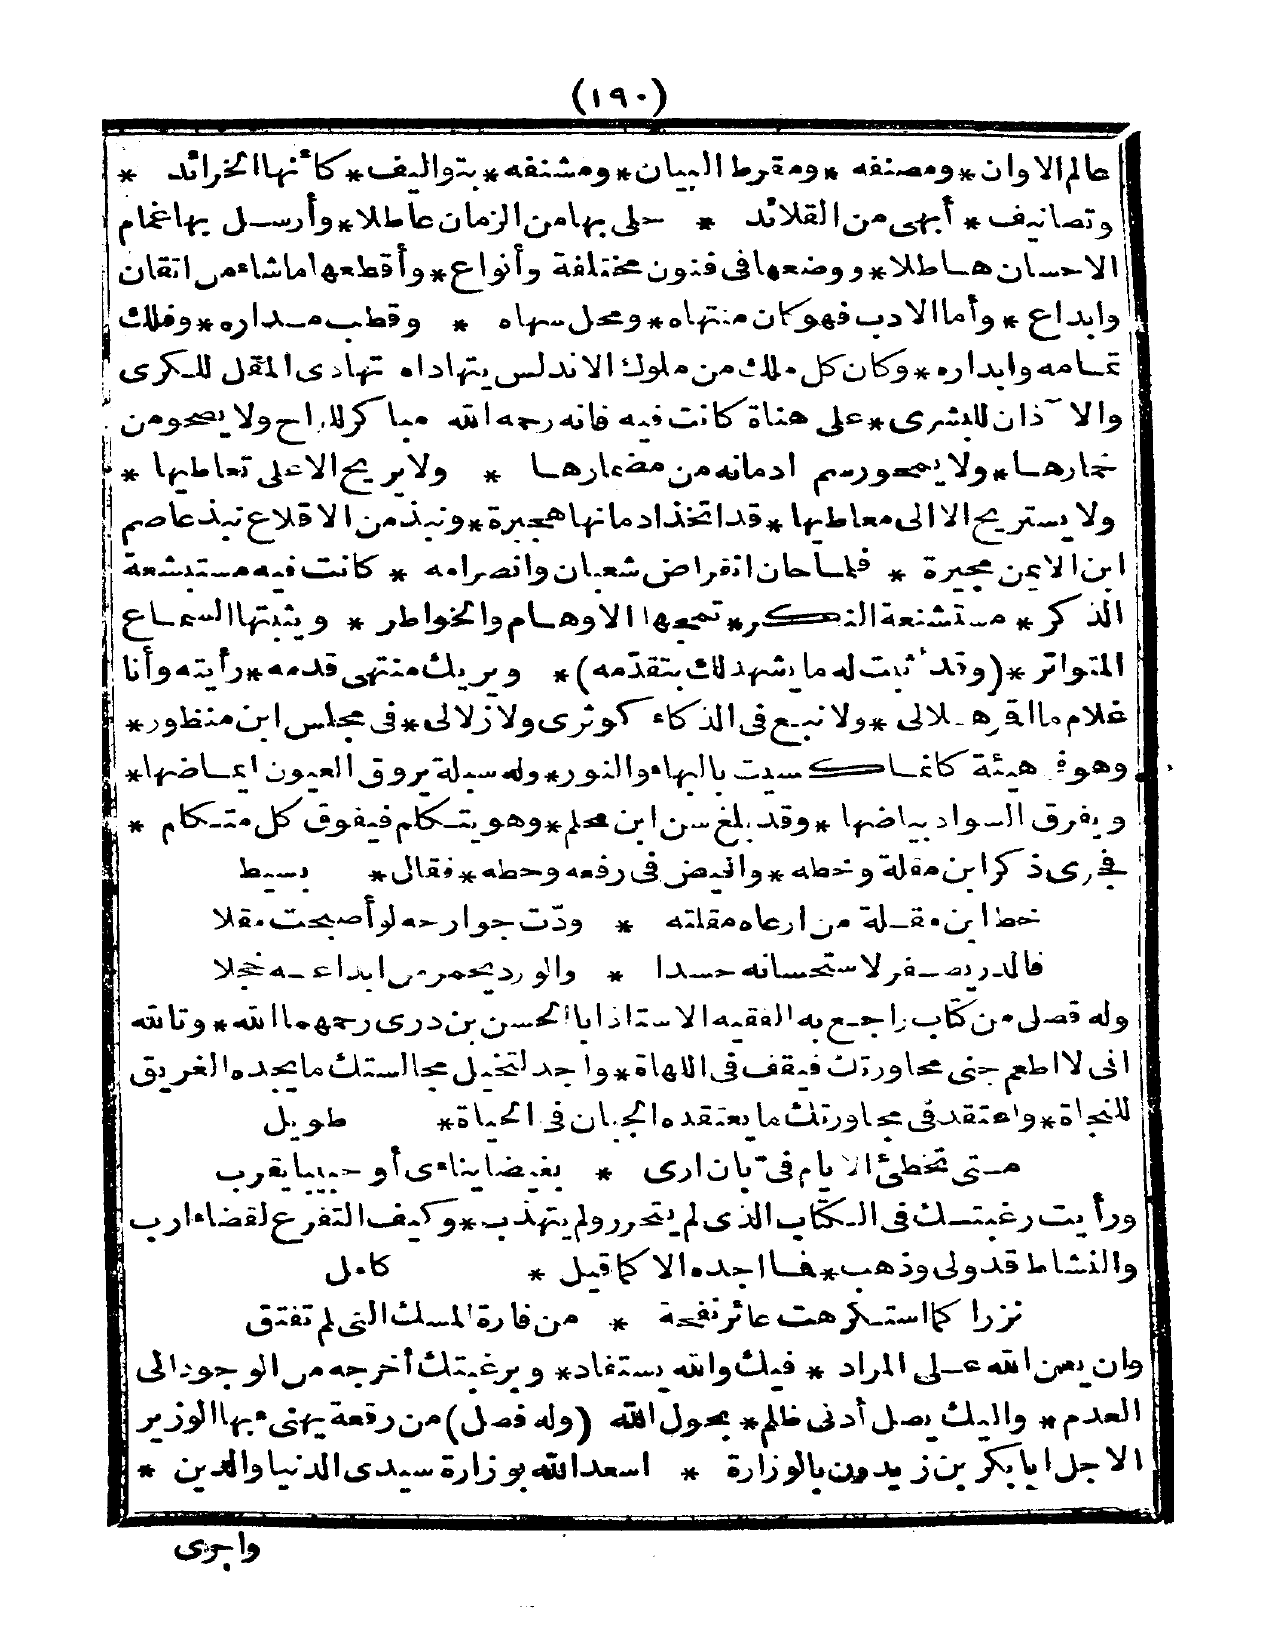 (١٩٠)
عالم الاوان*ومصنفه *ومقرط البيان*ومشنفه*بتواليف*كأنها الخرائد *
وتصانيف* أبهى من القلائد * حلى بها من الزمان عاطلا*وأرسل بها غمام
الاحسان هاطلا*ووضعها فى فنون مختلفة وأنواع*وأقطعها ماشاء من اتقان
وابداع *وأما الادب فهو كان منتهاه*ومحل سهاه * وقطب مداره*وفلك
تمامه وابداره*وكان كل ملك من ملوك الاندلس يتهاداه تهادى المقل للكرى
والا ٓذان للبشرى*على هناة كانت فيه فانه رحمه الله مباكر للراح ولا يصحو من
خمارها*ولا يمحو رسم ادمانه من مضمارها * ولا يريح الا على تعاطيها *
ولا يستريح الا الى معاطيها *قد اتخذ ادمانها هجيرة*ونبذ من الاقلاع نبذ عاصم
ابن الايمن مجيرة * فلما حان انقراض شعبان وانصرامه * كانت فيه مستبشعة
الذكر* مستشنعة النكر*تمجها الاوهام والخواطر * ويثبتها السماع
المتواتر *(وقد أثبت له ما يشهد لك بتقدّمه)* ويريك منتهى قدمه*رأيته وأنا
غلام ما اقر هلالى *ولا نبع فى الذكاء كوثرى ولا زلالى*فى مجلس ابن منظور*
وهو فى هيئة كانما كسيت بالبهاء والنور*وله سبلة يروق العيون ايماضها*
ويفرق السواد بياضها *وقد بلغ سن ابن محلم*وهو يتكلم فيفوق كل متكلم *
فجرى ذكر ابن مقلة وخطه *وافيض فى رفعه وحطه*فقال* بسيط
خط ابن مقلة من ارعاه مقلته * ودّت جوارحه لو أصبحت مقلا
فالدر يصفر لاستحسانه حسدا * والورد يحمر من ابداعه خجلا
وله فصل من كتاب راجع به الفقيه الاستاذ ابا الحسن بن درى رحمهما الله*وتالله
انى لا اطعم جنى محاورتك فيقف فى اللهاة*واجد لتخيل مجالستك ما يجده الغريق
للنجاة*واعتقد فى مجاورتك ما يعتقده الجبان فى الحياة* طويل
متى تخطئ الايام فىّ بان ارى * بغيضا يناءى أو حبيبا يقرب
ورأيت رغبتك فى الكتاب الذى لم يتحرر ولم يتهذب*وكيف التفرغ لقضاء ارب
والنشاط قد ولى وذهب*فما اجده الا كما قيل * كامل
نزرا كما استكرهت عائر نفحة * من فارة المسك التى لم تفتق
وان يعن الله على المراد *فيك والله يستفاد* وبرغبتك أخرجه من الوجود الى
العدم* واليك يصل أدنى ظلم* بحول الله (وله فصل) من رقعة يهنىء بها الوزير
الاجل ابا بكر بن زيدون بالوزارة * اسعد الله بوزارة سيدى الدنيا والدين *
واجرى